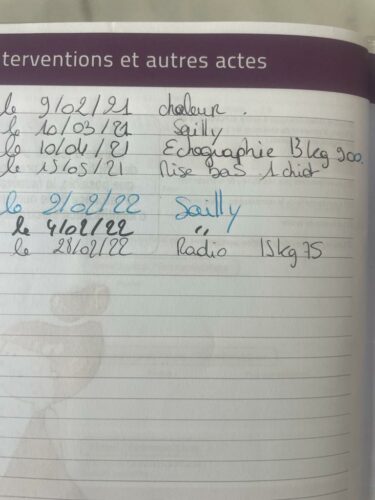 terventions et autres actes
le 9/02/21 chaleur.
le 10/03/21 Sailly
le 10/04/21 Echographie 13kg 900.
le 15/05/21 Mise bas 1 chiot
le 2/02/22 Sailly
le 4/02/22 "
le 28/02/22 Radio 15kg 75